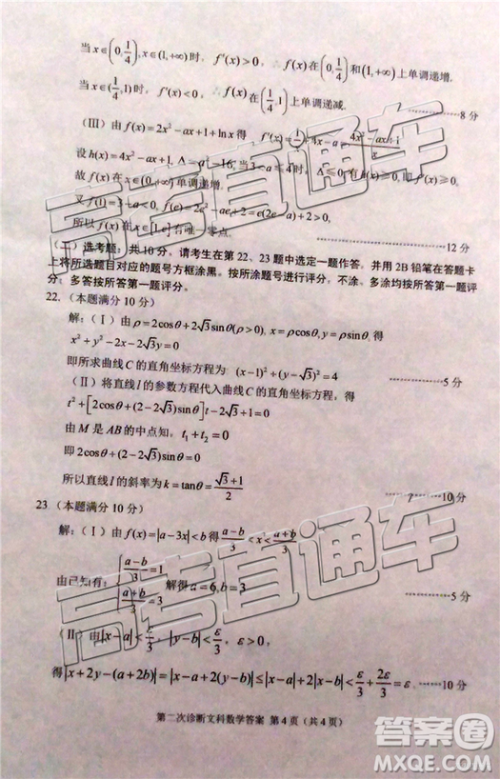 当 x∈(0, 1/4), x∈(1,+∞)时, f'(x)>0, ∴f(x)在(0, 1/4)和(1,+∞)上单调递增,
当 x∈(1/4, 1)时, f'(x)<0, ∴f(x)在(1/4, 1)上单调递减. ……………8分
(III) 由 f(x)=2x²-ax+1+ln x 得 f'(x)=4x-a+1/x=(4x²-ax+1)/x
设 h(x)=4x²-ax+1, Δ=a²-16, 当3<a≤4时, Δ≤0, 有h(x)≥0, 即 f'(x)≥0,
故 f(x) 在 单调递增.
又 f(1)=3-a<0, f(e)=2e²-ae+2=e(2e-a)+2>0,
所以 f(x) 在[1,e]有唯一零点. ……………12分
(二) 选考题: 共10分. 请考生在第22、23题中选定一题作答, 并用2B铅笔在答题卡
上将所选题目对应的题号方框涂黑. 按所涂题号进行评分, 不涂、多涂均按所答第一题评
分; 多答按所答第一题评分.
22. (本题满分10分)
解: (I) 由 ρ=2cosθ+2√3sinθ(ρ>0), x=ρcosθ, y=ρsinθ, 得
x²+y²-2x-2√3y=0
即所求曲线C的直角坐标方程为 (x-1)²+(y-√3)²=4 ……………5分
(II) 将直线l的参数方程代入曲线C的直角坐标方程, 得
t²+[2cosθ+(2-2√3)sinθ]t-2√3+1=0
由 M 是 AB 的中点知, t₁+t₂=0
即 2cosθ+(2-2√3)sinθ=0
所以直线l的斜率为 k=tanθ=(√3+1)/2 ……………10分
23 (本题满分10分)
解: (I) 由 f(x)=|a-3x|<b 得 (a-b)/3<x<(a+b)/3
由已知有: {(a-b)/3=1, (a+b)/3=3 解得 a=6,b=3 ……………5分
(II) 由|x-a|<ε/3, |y-b|<ε/3, ε>0,
得|x+2y-(a+2b)|=|x-a+2(y-b)|≤|x-a|+2|x-b|<ε/3+2ε/3=ε ………10分
第二次诊断文科数学答案 第4页 (共4页)
高考直通车
高考直通车
答案圈
MXQE.COM